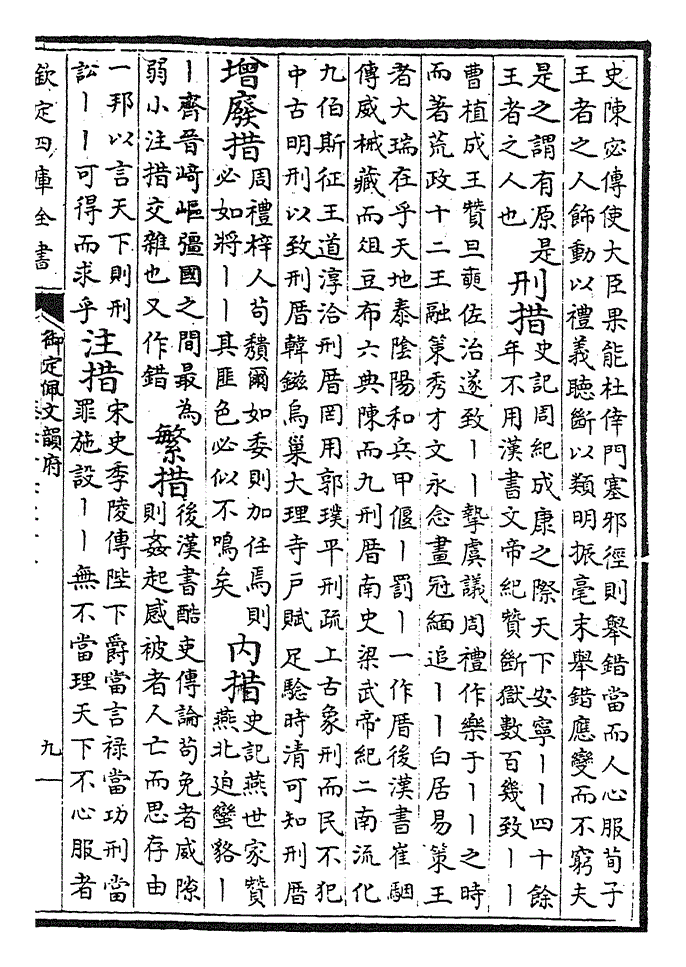 史陳宓傳使大臣果能杜倖門塞邪徑則舉錯當而人心服荀子
王者之人飾動以禮義聽斷以類明振毫末舉錯應變而不窮夫
是之謂有原是
王者之人也
刑措
史記周紀成康之際天下安寧丨丨四十餘
年不用漢書文帝紀贊斷獄數百幾致丨丨
曹植成王贊旦奭佐治遂致丨丨摯虞議周禮作樂于丨丨之時
而著荒政十二王融策秀才文永念畫冠緬追丨丨白居易策王
者大瑞在乎天地泰陰陽和兵甲偃丨罰丨一作厝後漢書崔駰
傳威械藏而俎豆布六典陳而九刑厝南史梁武帝紀二南流化
九伯斯征王道淳洽刑厝罔用郭璞平刑疏上古象刑而民不犯
中古明刑以致刑厝韓鎡烏巢大理寺戸賦足驗時清可知刑厝
增廢措
周禮梓人苟頹爾如委則加任焉則
必如將丨丨其匪色必似不鳴矣
內措
史記燕世家贊
燕北迫蠻貉丨
丨齊晉崎嶇彊國之間最為
弱小注措交雜也又作錯
繁措
後漢書酷吏傳論苟免者威隙
則姦起感被者人亡而思存由
一邦以言天下則刑
訟丨丨可得而求乎
注措
宋史李陵傳陛下爵當言祿當功刑當
罪施設丨丨無不當理天下不心服者
欽定四庫全書
御定佩文韻府
九